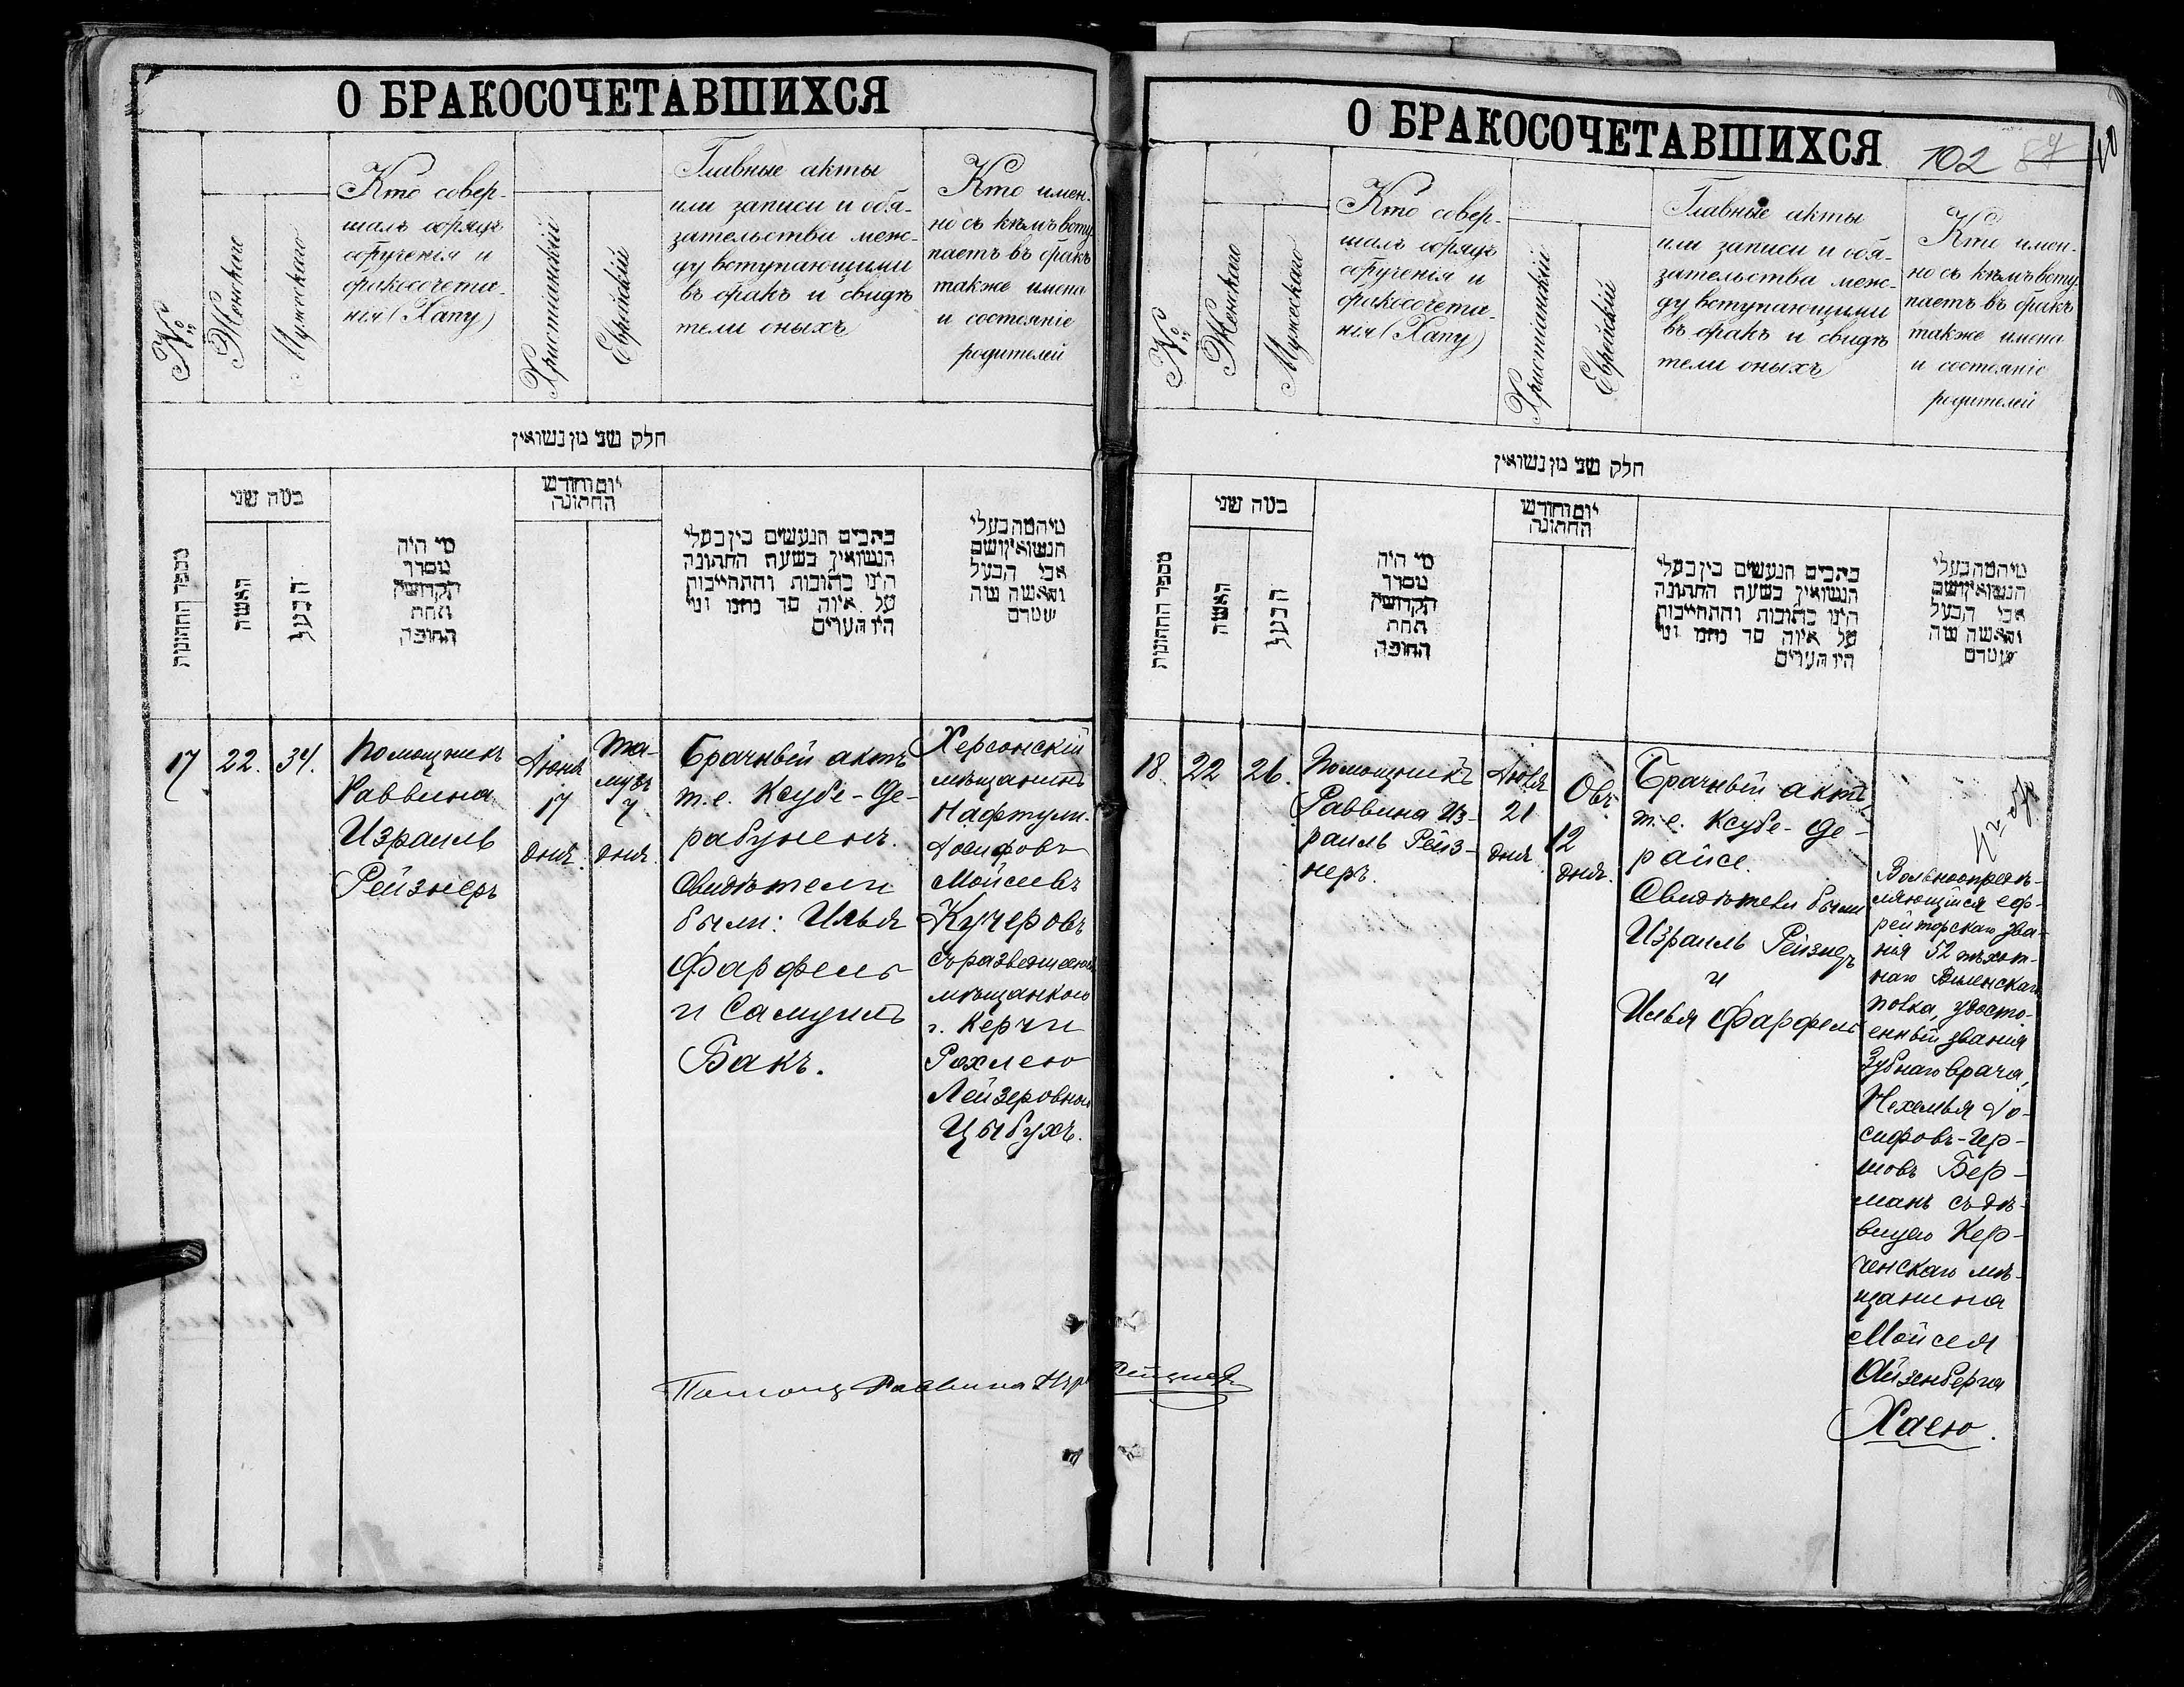 О БРАКОСОЧЕТАВШИХСЯ
№
Женскаго
Мужескаго
Кто совер-
шалъ обрядъ
обрученія и
бракосочета-
нія (Хапу)
Христіанскій
Еврейскій
Главные акты
или записи и обя-
зательства меж-
ду вступающими
въ бракъ и свидѣ
тели оныхъ
Кто имен-
но съ кѣмъ всту
паетъ въ бракъ
также имена
и состояніе
родителей
חלק שני מן נשואין
מספר החתונות
כמה שני
האשה
הבעל
מי היה
מסדר
הקדושין
תחת
החופה
יום וחודש
החתונה
כתבים הנעשים בין בעלי
הנשואין בשעת החתונה
היינו כתובות והתחייבות
על איזה סך נתנו ומי
היו העדים
מי המה בעלי
הנשואין ושם
אבי הבעל
והאשה ומה
שמדם
17
22.
34.
Помощникъ
Раввина
Израиль
Рейзнеръ
Іюня
17
дня.
Та-
музъ
7
дня.
Брачный актъ
т.е. Ксубе-Де-
рабуненъ.
Свидѣтели
были: Илья
Фарфель
и Самуилъ
Бакъ.
Херсонскій
мѣщанинъ
Нафтули-
Іосифовъ
Мойсеевъ
Кучеровъ
съ разведенною
мѣщанкою
г. Керчи
Рахлею
Лейзеровною
Цыбухъ.
Помощ Раввина Изр Рейзнеръ
О БРАКОСОЧЕТАВШИХСЯ
102
87
№
Женскаго
Мужескаго
Кто совер-
шалъ обрядъ
обрученія и
бракосочета-
нія (Хапу)
Христіанскій
Еврейскій
Главные акты
или записи и обя-
зательства меж-
ду вступающими
въ бракъ и свидѣ
тели оныхъ
Кто имен-
но съ кѣмъ всту
паетъ въ бракъ
также имена
и состояніе
родителей
חלק שני מן נשואין
מספר החתונות
כמה שני
האשה
הבעל
מי היה
מסדר
הקדושין
תחת
החופה
יום וחודש
החתונה
כתבים הנעשים בין בעלי
הנשואין בשעת החתונה
היינו כתובות והתחייבות
על איזה סך נתנו ומי
היו העדים
מי המה בעלי
הנשואין ושם
אבי הבעל
והאשה ומה
שמדם
18.
22
26.
Помощникъ
Раввина Из-
раиль Рейз-
неръ.
Іюля
21
дня
Овъ
12
дня.
Брачный актъ,
т.е. Ксубе-Де-
райсе.
Свидѣтели были
Израиль Рейзнеръ
и
Илья Фарфель
Вольноопредѣ-
ляющійся еф-
рейторскаго зва-
нія 52 пѣхот-
наго Виленскаго
полка, удосто-
енный званія
Зубнаго врача,
Нехемья Іо-
сифовъ-Гер-
шовъ Бер-
манъ съ дѣ-
вицею Кер-
ченскаго мѣ-
щанина
Мойсея
Айзенберга
Хаею.